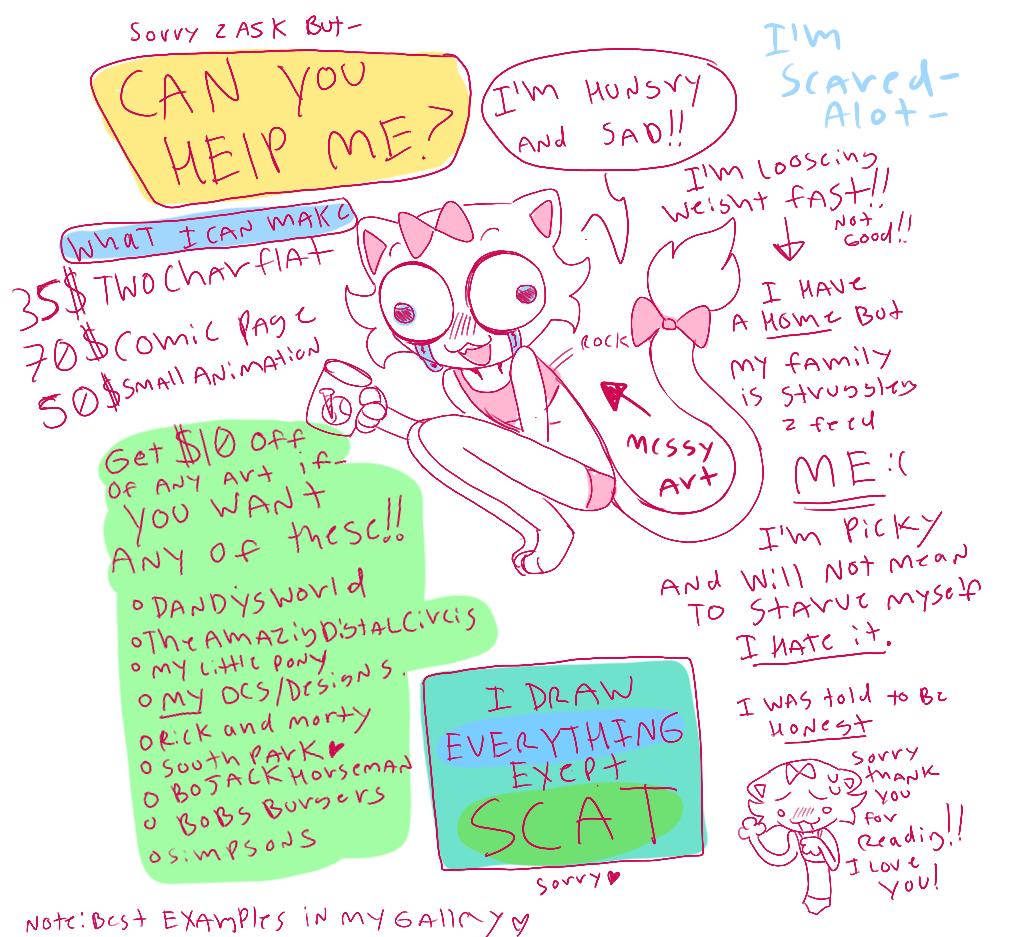 Sorry 2 ASK But-
CAN YOU
HElP ME?
I'M HUNGRY
AND SAD!!
I'm
Scared-
Alot-
WHAT I CAN MAKE
35$ TWO Char flat
70$ Comic PAGE
50$ SMALL ANIMATION
I'm looscing
weight fAST!!
Not
Good!!
I HAVE
A HOME But
my family
is struggley
2 feed
ME :(
I'm Picky
AND Will Not Mean
TO Starve myself
I HAte it.
ROCK
Messy
Art
Get $10 Off
Of ANY Art if-
YOU WANT
ANY of these!!
DANDYS World
The AMAZing DigitAL Circis
my little pony
MY OCS/Designs.
Rick and morty
South PArK ♥
BOJACK Horseman
BOBS Burgers
Simpsons
I DRAW
EVERYTHING
EXEPT
SCAT
Sorry ♥
I WAS told to Be
HONEST
Sorry
thank
you
for
Readig!!
I Love
YOU!
Note: Best EXAmples in my Gallry ♡